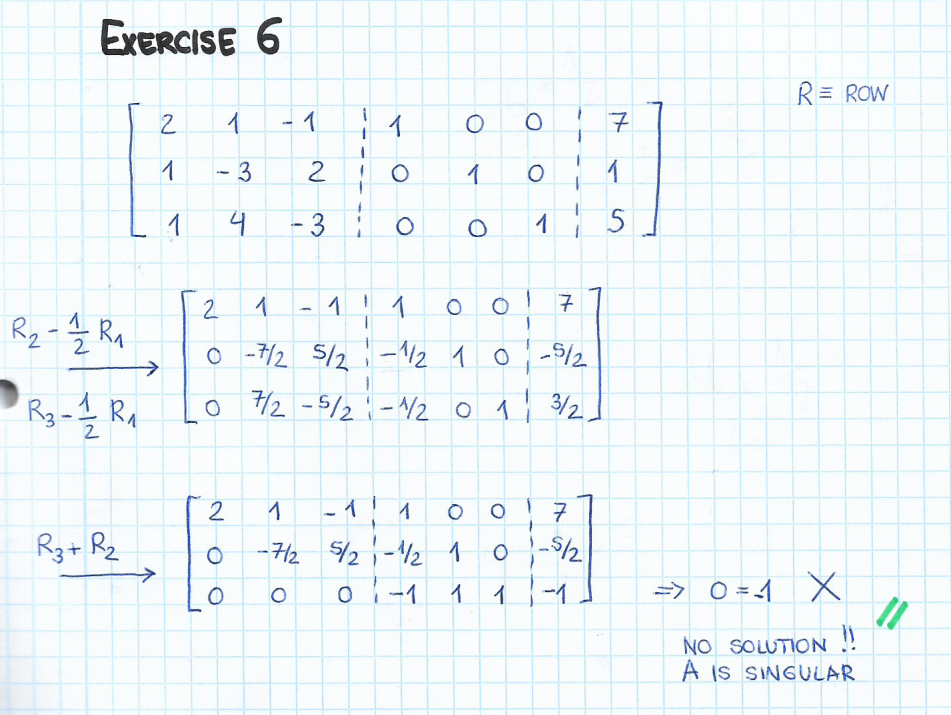 EXERCISE 6
R ≡ ROW
[ 2 1 -1 ¦ 1 0 0 ¦ 7 ]
[ 1 -3 2 ¦ 0 1 0 ¦ 1 ]
[ 1 4 -3 ¦ 0 0 1 ¦ 5 ]
R₂ - 1/2 R₁
R₃ - 1/2 R₁
→
[ 2 1 -1 ¦ 1 0 0 ¦ 7 ]
[ 0 -7/2 5/2 ¦ -1/2 1 0 ¦ -5/2 ]
[ 0 7/2 -5/2 ¦ -1/2 0 1 ¦ 3/2 ]
R₃ + R₂
→
[ 2 1 -1 ¦ 1 0 0 ¦ 7 ]
[ 0 -7/2 5/2 ¦ -1/2 1 0 ¦ -5/2 ]
[ 0 0 0 ¦ -1 1 1 ¦ -1 ]
⇒ 0 = -1 X
NO SOLUTION !!
A IS SINGULAR